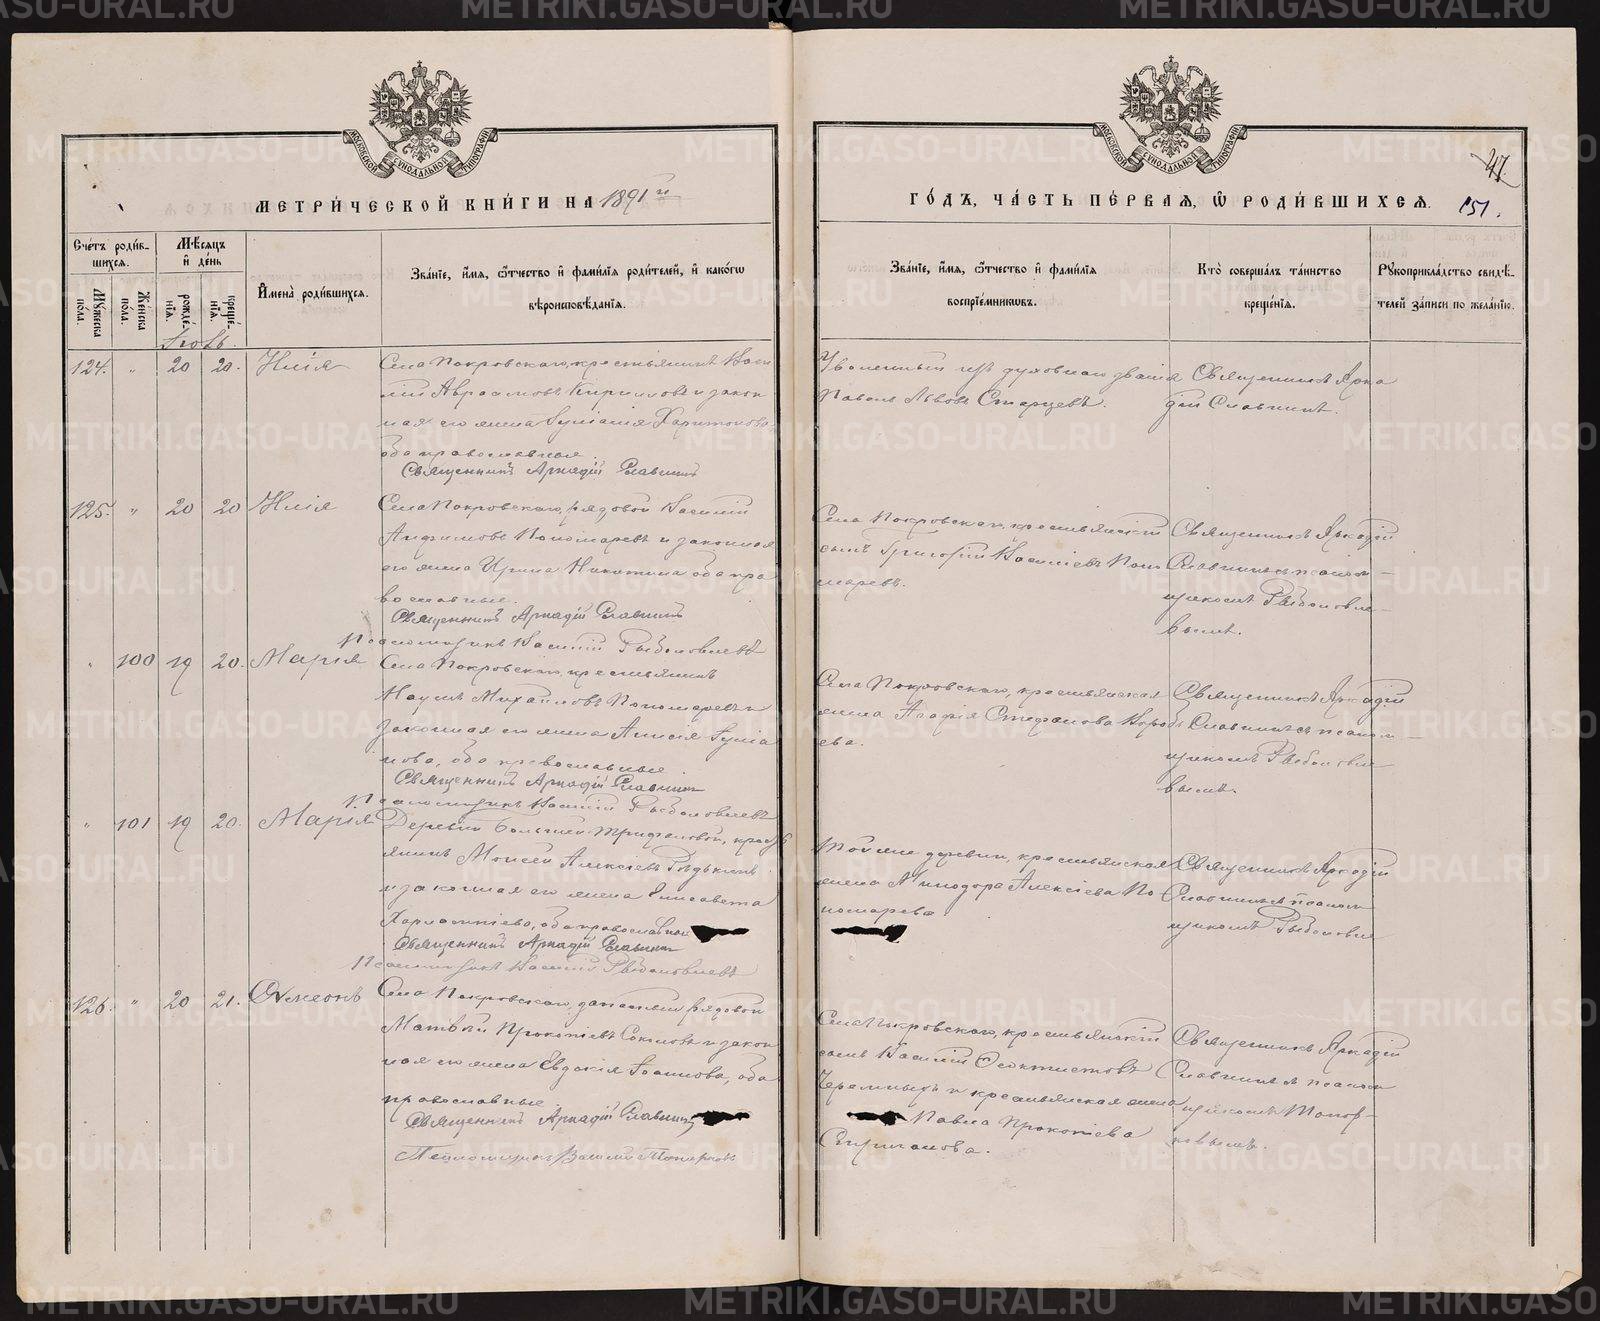 METRIKI.GASO-URAL.RU
МОСКОВСКОЙ СѴНОДАЛЬНОЙ ТИПОГРАФІИ
МОСКОВСКОЙ СѴНОДАЛЬНОЙ ТИПОГРАФІИ
47.
МЕТРИ́ЧЕСКОЙ КНИ́ГИ НА 1891 й
ГО́ДЪ, ЧА́СТЬ ПЕ́РВАЯ, Ѡ РОДИ́ВШИХСЯ. 151.
Сче́тъ роди́вшихся.
Му́жеска по́ла.
Же́нска по́ла.
Мѣ́сяцъ и де́нь
рожде́нія.
креще́нія.
Имена̀ роди́вшихся.
Зва́ніе, и́мя, ѻ҆́тчество и фами́лія роди́телей, и како́гѡ вѣроисповѣ́данія.
Зва́ніе, и́мя, ѻ҆́тчество и фами́лія воспріе́мниковъ.
Кто̀ соверша́лъ та́инство креще́нія.
Рꙋкоприкла́дство свидѣ́телей за́писи по жела́нію.
Іюль.
124. " 20 20. Илія
Села Покровскаго, крестьянинъ Васи
лій Авраамовъ Кирилловъ и закон
ная его жена Іуліанія Харитонова
оба православные.
Священникъ Аркадій Славнинъ
Уволенный изъ духовнаго званія
Павелъ Львовъ Старцевъ.
Священникъ Арка
дій Славнинъ.
125. " 20 20 Илія
Села Покровскаго, рядовой Василій
Анфимовъ Пономаревъ и законная
его жена Ирина Никитина оба пра
вославные.
Священникъ Аркадій Славнинъ
Псаломщикъ Василій Рыболовлевъ
Села Покровскаго, крестьянскій
сынъ Григорій Василіевъ Поно
маревъ.
Священникъ Аркадій
Славнинъ съ псалом-
щикомъ Рыболовле-
вымъ.
" 100 19 20. Марія
Села Покровскаго, крестьянинъ
Наумъ Михаиловъ Пономаревъ и
законная его жена Анисія Іуліа
нова, оба православные.
Священникъ Аркадій Славнинъ
Псаломщикъ Василій Рыболовлевъ
Села Покровскаго, крестьянская
жена Агафія Стефанова Короб
ева.
Священникъ Аркадій
Славнинъ съ псалом-
щикомъ Рыболовле
вымъ.
" 101 19 20. Марія
Деревни Большей Трифановой, крестъ
янинъ Моисей Алексіевъ Рѣдькинъ
и законная его жена Елисавета
Харлампіева, оба православные
Священникъ Аркадій Славнинъ
Псаломщикъ Василій Рыболовлевъ
Той же деревни, крестьянская
жена Минодора Алексіева По
номарева.
Священникъ Аркадій
Славнинъ съ псалом
щикомъ Рыболовле
126. " 20 21. Сѵмеонъ
Села Покровскаго, запасный рядовой
Матѳей Прокопіевъ Соколовъ и закон
ная его жена Евдокія Іоаннова, оба
православные.
Священникъ Аркадій Славнинъ
Псаломщикъ Василій Топорковъ
Села Покровскаго, крестьянскій
сынъ Василій Ѳеоктистовъ
Черемныхъ и крестьянская жена
Павла Прокопіева
Священникъ Аркадій
Славнинъ съ псалом
щикомъ Топор-
ковымъ.